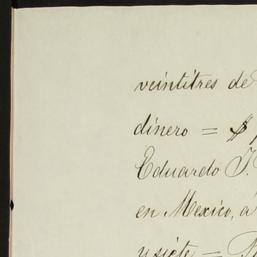 veintitres de
dinero = $
Eduardo J.
en Mexico, á
y siete =